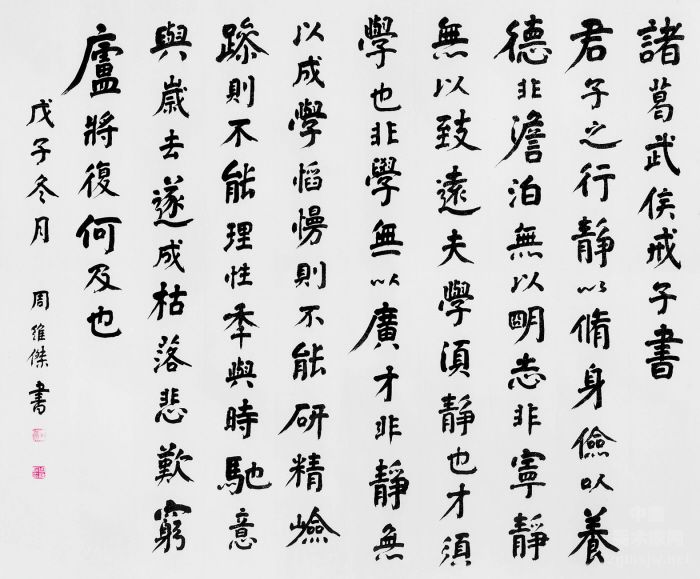 諸葛武侯戒子書
君子之行靜以脩身儉以養
德非澹泊無以明志非寧靜
無以致遠夫學須靜也才須
學也非學無以廣才非靜無
以成學慆慢則不能研精嶮
躁則不能理性年與時馳意
與歲去遂成枯落悲歎窮
廬將復何及也
戊子冬月 周維傑書